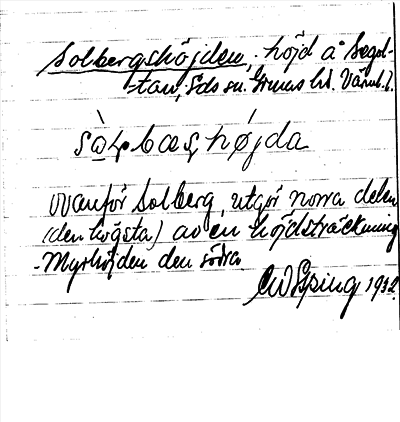 Solbergshöjden, höjd å Segol-
tan, Sds sn. Grums hd. Värml. l.
sòⱡbæshøjda
ovanför Solberg, utgör norra delen
(den högsta) av en höjdsträckning
- Myrhöjden den södra
1932